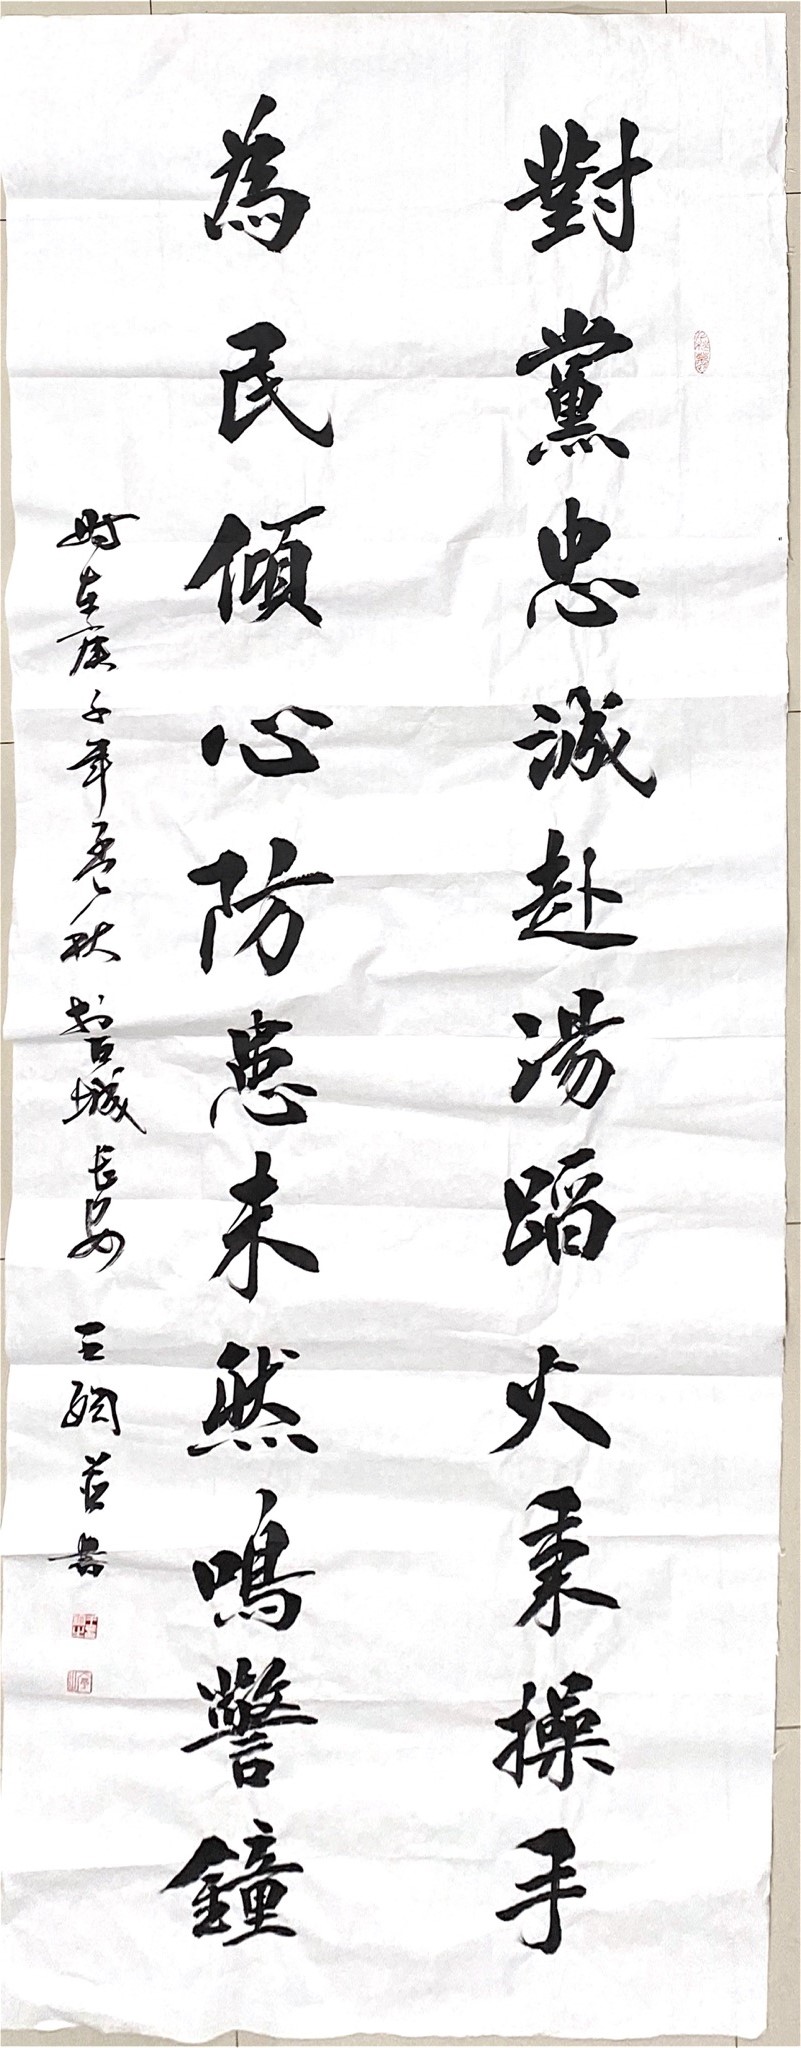 對黨忠誠赴湯蹈火秉操手
為民傾心防患未然鳴警鐘
時在庚子年孟秋於古城長安王
書